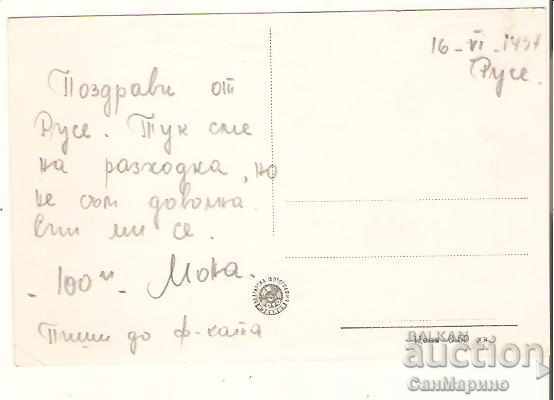 16 - VI - 1957
Русе.
Поздрави от
Русе. Тук сме
на разходка, но
не съм доволна.
Спи ми се.
- 100 м - Мона.
Пиши до ф-ката
BALKAN
auction
СанМарино